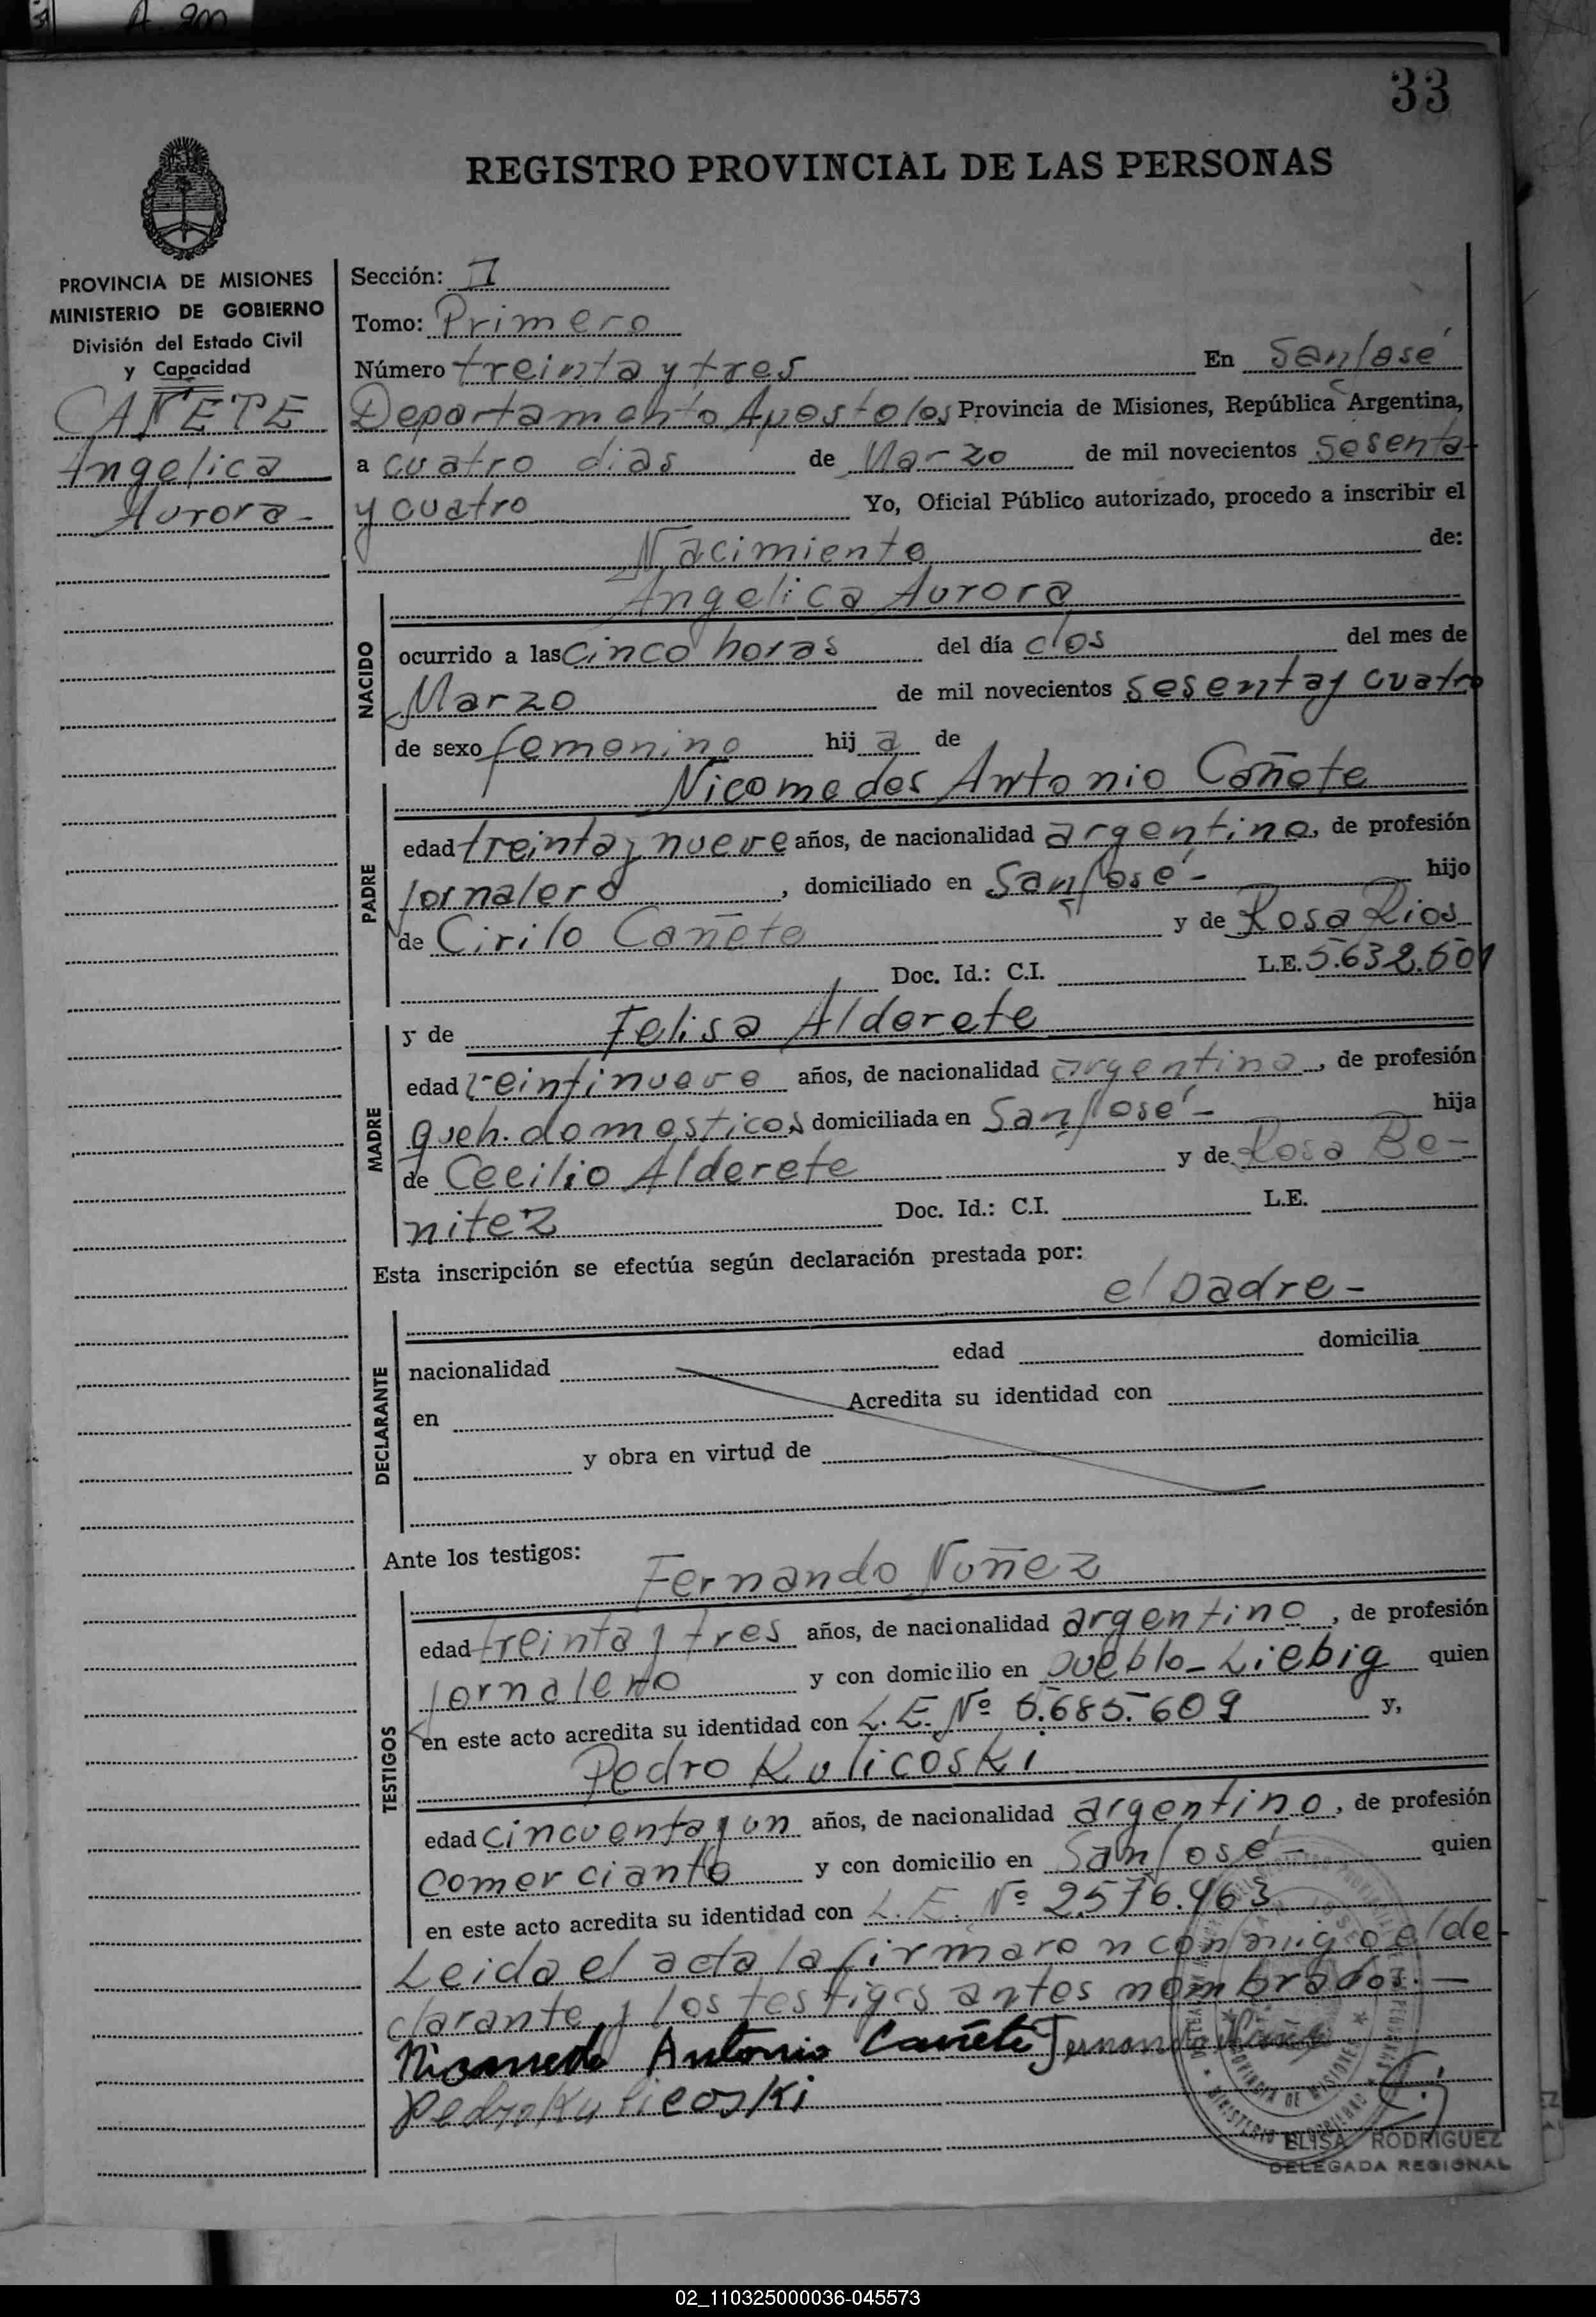 A. 900
33
REGISTRO PROVINCIAL DE LAS PERSONAS
PROVINCIA DE MISIONES
MINISTERIO DE GOBIERNO
División del Estado Civil
y Capacidad
CAÑETE
Angelica
Aurora-
Sección: I
Tomo: Primero
Número treinta y tres En San José
Departamento Apostoles Provincia de Misiones, República Argentina,
a cuatro dias de Marzo de mil novecientos sesenta
y cuatro Yo, Oficial Público autorizado, procedo a inscribir el
Nacimiento de:
NACIDO
Angelica Aurora
ocurrido a las cinco horas del día dos del mes de
Marzo de mil novecientos sesenta y cuatro
de sexo femenino hij a de
PADRE
Nicomedes Antonio Cañete
edad treinta y nueve años, de nacionalidad argentino, de profesión
Jornalero, domiciliado en San José- hijo
de Cirilo Cañete y de Rosa Rios
Doc. Id.: C.I. L.E. 5.632.501
MADRE
y de Felisa Alderete
edad veintinueve años, de nacionalidad argentina, de profesión
queh. domesticos domiciliada en San José- hija
de Cecilio Alderete y de Rosa Be-
nitez Doc. Id.: C.I. L.E.
Esta inscripción se efectúa según declaración prestada por:
el padre-
DECLARANTE
nacionalidad edad domicilia
en Acredita su identidad con
y obra en virtud de
Ante los testigos:
TESTIGOS
Fernando Nuñez
edad treinta y tres años, de nacionalidad argentino, de profesión
Jornalero y con domicilio en pueblo-Liebig quien
en este acto acredita su identidad con L.E. Nº 5.685.609 y,
Pedro Kulicoski
edad cincuenta y un años, de nacionalidad argentino, de profesión
comerciante y con domicilio en San José- quien
en este acto acredita su identidad con L.E. Nº 2.576.463
Leida el acta la firmaron conmigo el de
clarante y los testigos antes nombrados.-
Antonio Cañete Fernando
Pedro Kulicoski
PROVINCIA DE MISIONES
ELISA RODRIGUEZ
DELEGADA REGIONAL
02_110325000036-045573